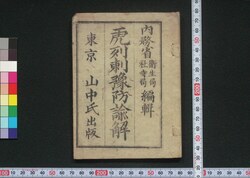 内務省 衛生局 社寺局 編輯
虎列剌豫防諭解
東京 山中氏出版